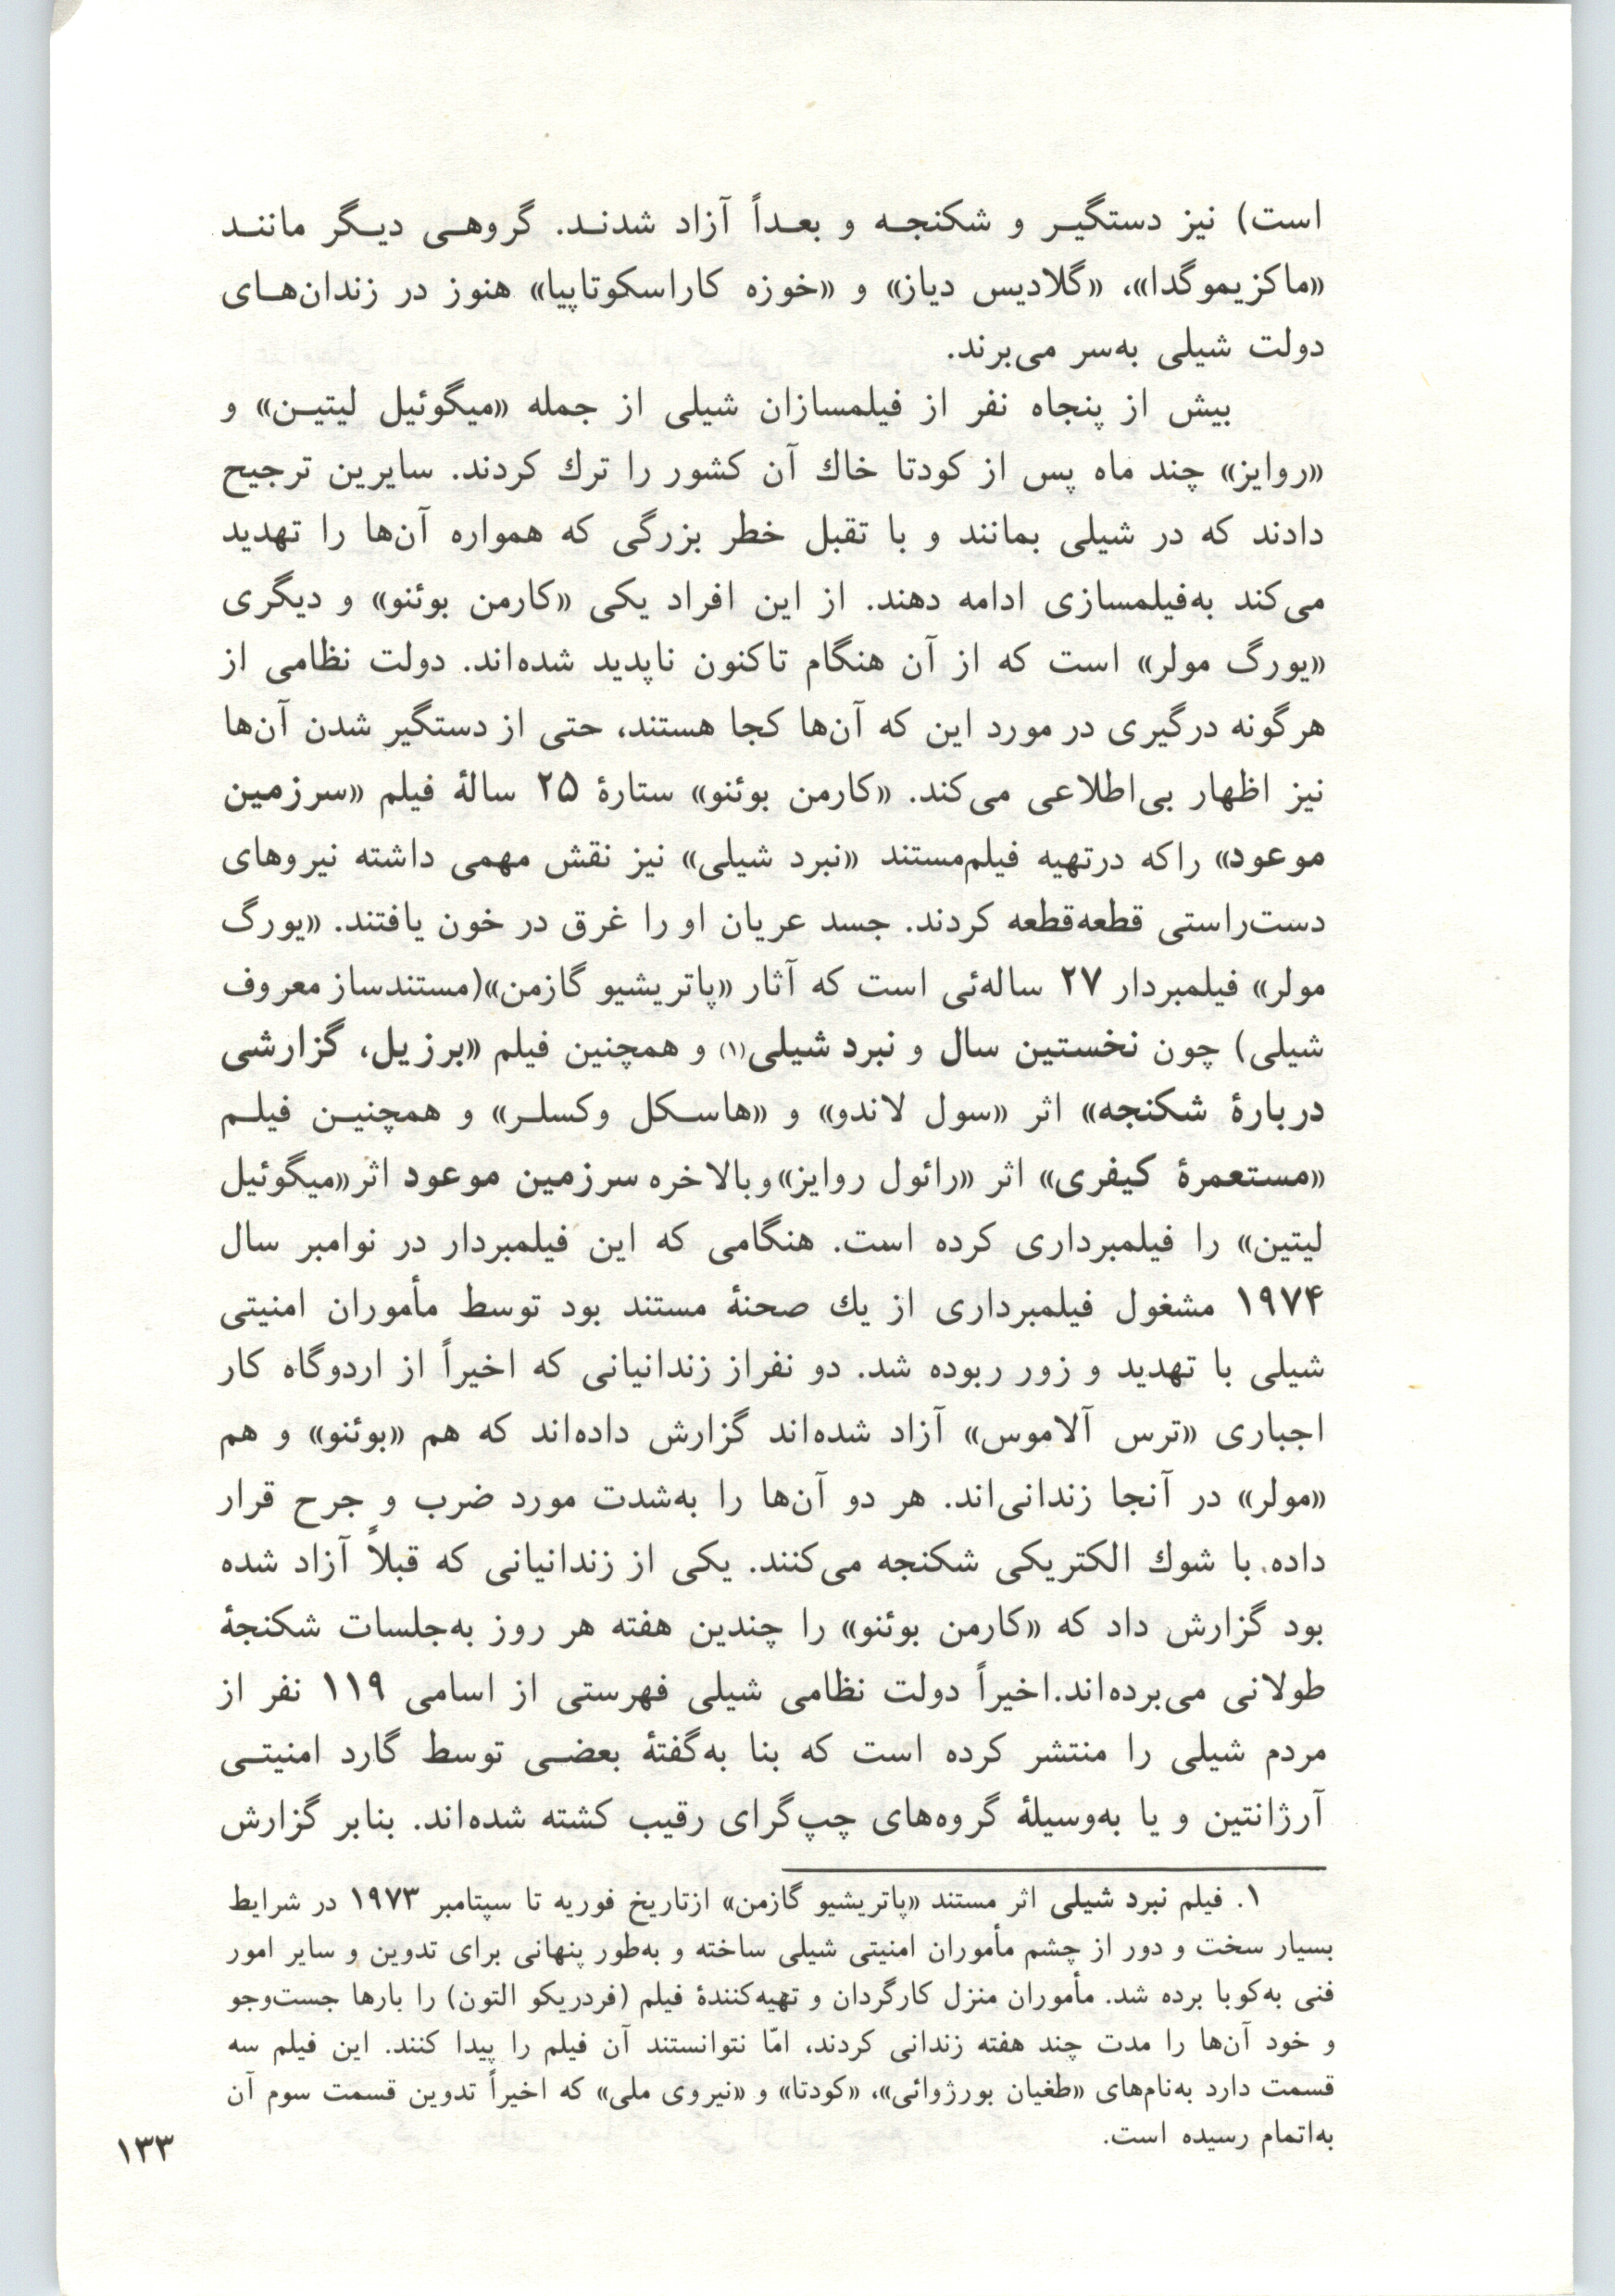 است) نیز دستگیـر و شکنجـه و بعـداً آزاد شدنـد. گروهـی دیـگر ماننـد
«ماکزیموگدا»، «گلادیس دیاز» و «خوزه کاراسکوتاپیا» هنوز در زندان‌هـای
دولت شیلی به‌سر می‌برند.
بیش از پنجاه نفر از فیلمسازان شیلی از جمله «میگوئیل لیتیـن» و
«روایز» چند ماه پس از کودتا خاك آن کشور را ترك کردند. سایرین ترجیح
دادند که در شیلی بمانند و با تقبل خطر بزرگی که همواره آن‌ها را تهدید
می‌کند به‌فیلمسازی ادامه دهند. از این افراد یکی «کارمن بوئنو» و دیگری
«یورگ مولر» است که از آن هنگام تاکنون ناپدید شده‌اند. دولت نظامی از
هرگونه درگیری در مورد این که آن‌ها کجا هستند، حتی از دستگیر شدن آن‌ها
نیز اظهار بی‌اطلاعی می‌کند. «کارمن بوئنو» ستارهٔ ۲۵ سالهٔ فیلم «سرزمین
موعود» راکه درتهیه فیلم‌مستند «نبرد شیلی» نیز نقش مهمی داشته نیروهای
دست‌راستی قطعه‌قطعه کردند. جسد عریان او را غرق در خون یافتند. «یورگ
مولر» فیلمبردار ۲۷ ساله‌ئی است که آثار «پاتریشیو گازمن»(مستندساز معروف
شیلی) چون نخستین سال و نبرد شیلی(۱) و همچنین فیلم «برزیل، گزارشی
دربارهٔ شکنجه» اثر «سول لاندو» و «هاسـکل وکسلـر» و همچنیـن فیلـم
«مستعمرهٔ کیفری» اثر «رائول روایز»وبالاخره سرزمین موعود اثر«میگوئیل
لیتین» را فیلمبرداری کرده است. هنگامی که این فیلمبردار در نوامبر سال
۱۹۷۴ مشغول فیلمبرداری از یك صحنهٔ مستند بود توسط مأموران امنیتی
شیلی با تهدید و زور ربوده شد. دو نفراز زندانیانی که اخیراً از اردوگاه کار
اجباری «ترس آلاموس» آزاد شده‌اند گزارش داده‌اند که هم «بوئنو» و هم
«مولر» در آنجا زندانی‌اند. هر دو آن‌ها را به‌شدت مورد ضرب و جرح قرار
داده، با شوك الکتریکی شکنجه می‌کنند. یکی از زندانیانی که قبلاً آزاد شده
بود گزارش داد که «کارمن بوئنو» را چندین هفته هر روز به‌جلسات شکنجهٔ
طولانی می‌برده‌اند.اخیراً دولت نظامی شیلی فهرستی از اسامی ۱۱۹ نفر از
مردم شیلی را منتشر کرده است که بنا به‌گفتهٔ بعضـی توسط گارد امنیتـی
آرژانتین و یا به‌وسیلهٔ گروه‌های چپ‌گرای رقیب کشته شده‌اند. بنابر گزارش
۱. فیلم نبرد شیلی اثر مستند «پاتریشیو گازمن» ازتاریخ فوریه تا سپتامبر ۱۹۷۳ در شرایط
بسیار سخت و دور از چشم مأموران امنیتی شیلی ساخته و به‌طور پنهانی برای تدوین و سایر امور
فنی به‌کوبا برده شد. مأموران منزل کارگردان و تهیه‌کنندهٔ فیلم (فردریکو التون) را بارها جست‌وجو
و خود آن‌ها را مدت چند هفته زندانی کردند، امّا نتوانستند آن فیلم را پیدا کنند. این فیلم سه
قسمت دارد به‌نام‌های «طغیان بورژوائی»، «کودتا» و «نیروی ملی» که اخیراً تدوین قسمت سوم آن
به‌اتمام رسیده است.
۱۳۳